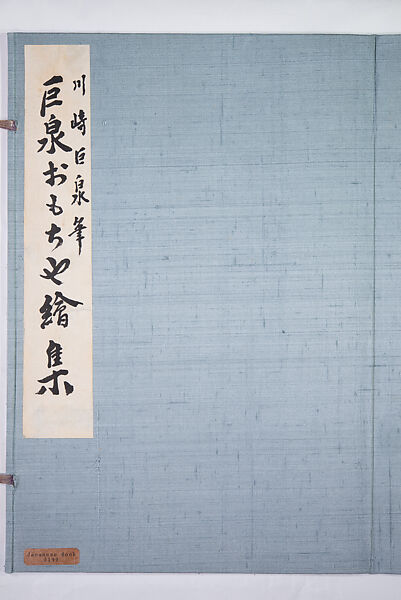 川崎巨泉筆
巨泉おもちや繪集
Japanese Book